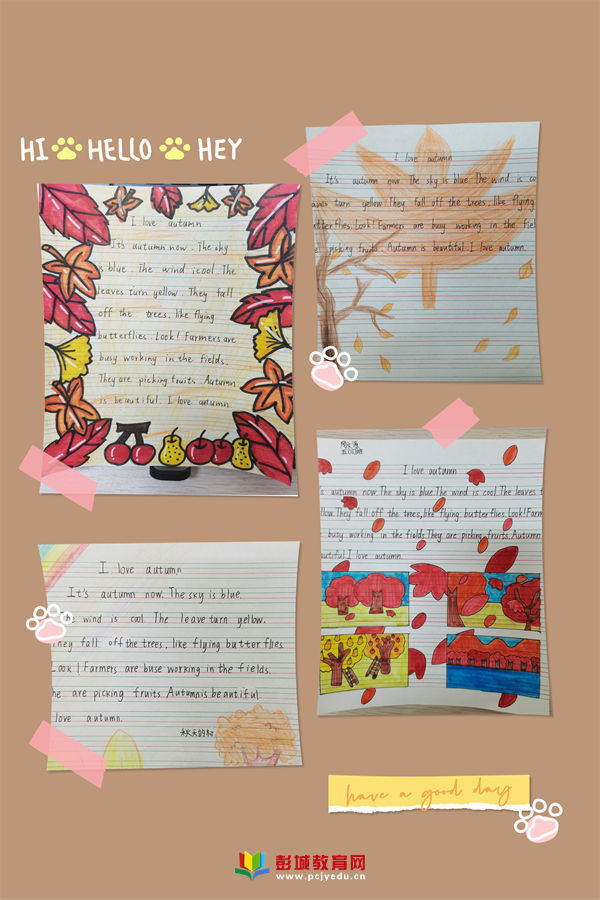 HI HELLO HEY
I love autumn
It's autumn now. The sky
is blue. The wind icool. The
leaves turn yellow. They fall
off the trees, like flying
butterflies. Look! Farmers are
busy working in the fields.
They are picking fruits. Autumn
is beautiful. I love autumn.
I love autumn
It's autumn now. The sky is blue. The wind is co
aves turn yellow. They fall off the trees, like flying
utterflies. Look! Farmers are busy working in the fiel
picking fruits. Autumn is beautiful. I love autumn.
I love autumn
s autumn now. The sky is blue. The wind is cool. The leaves t
llow. They fall off the trees, like flying butterflies. Look! Farm
busy working in the fields. They are picking fruits. Autumn
autiful. I love autumn.
I love autumn
It's autumn now. The sky is blue.
he wind is cool. The leave turn yellow.
They fall off the trees, like flying butterflies.
Look! Farmers are buse working in the fields.
he are picking fruits. Autumn is beautiful.
love autumn.
have a good day
彭城教育网
www.pcjyedu.cn